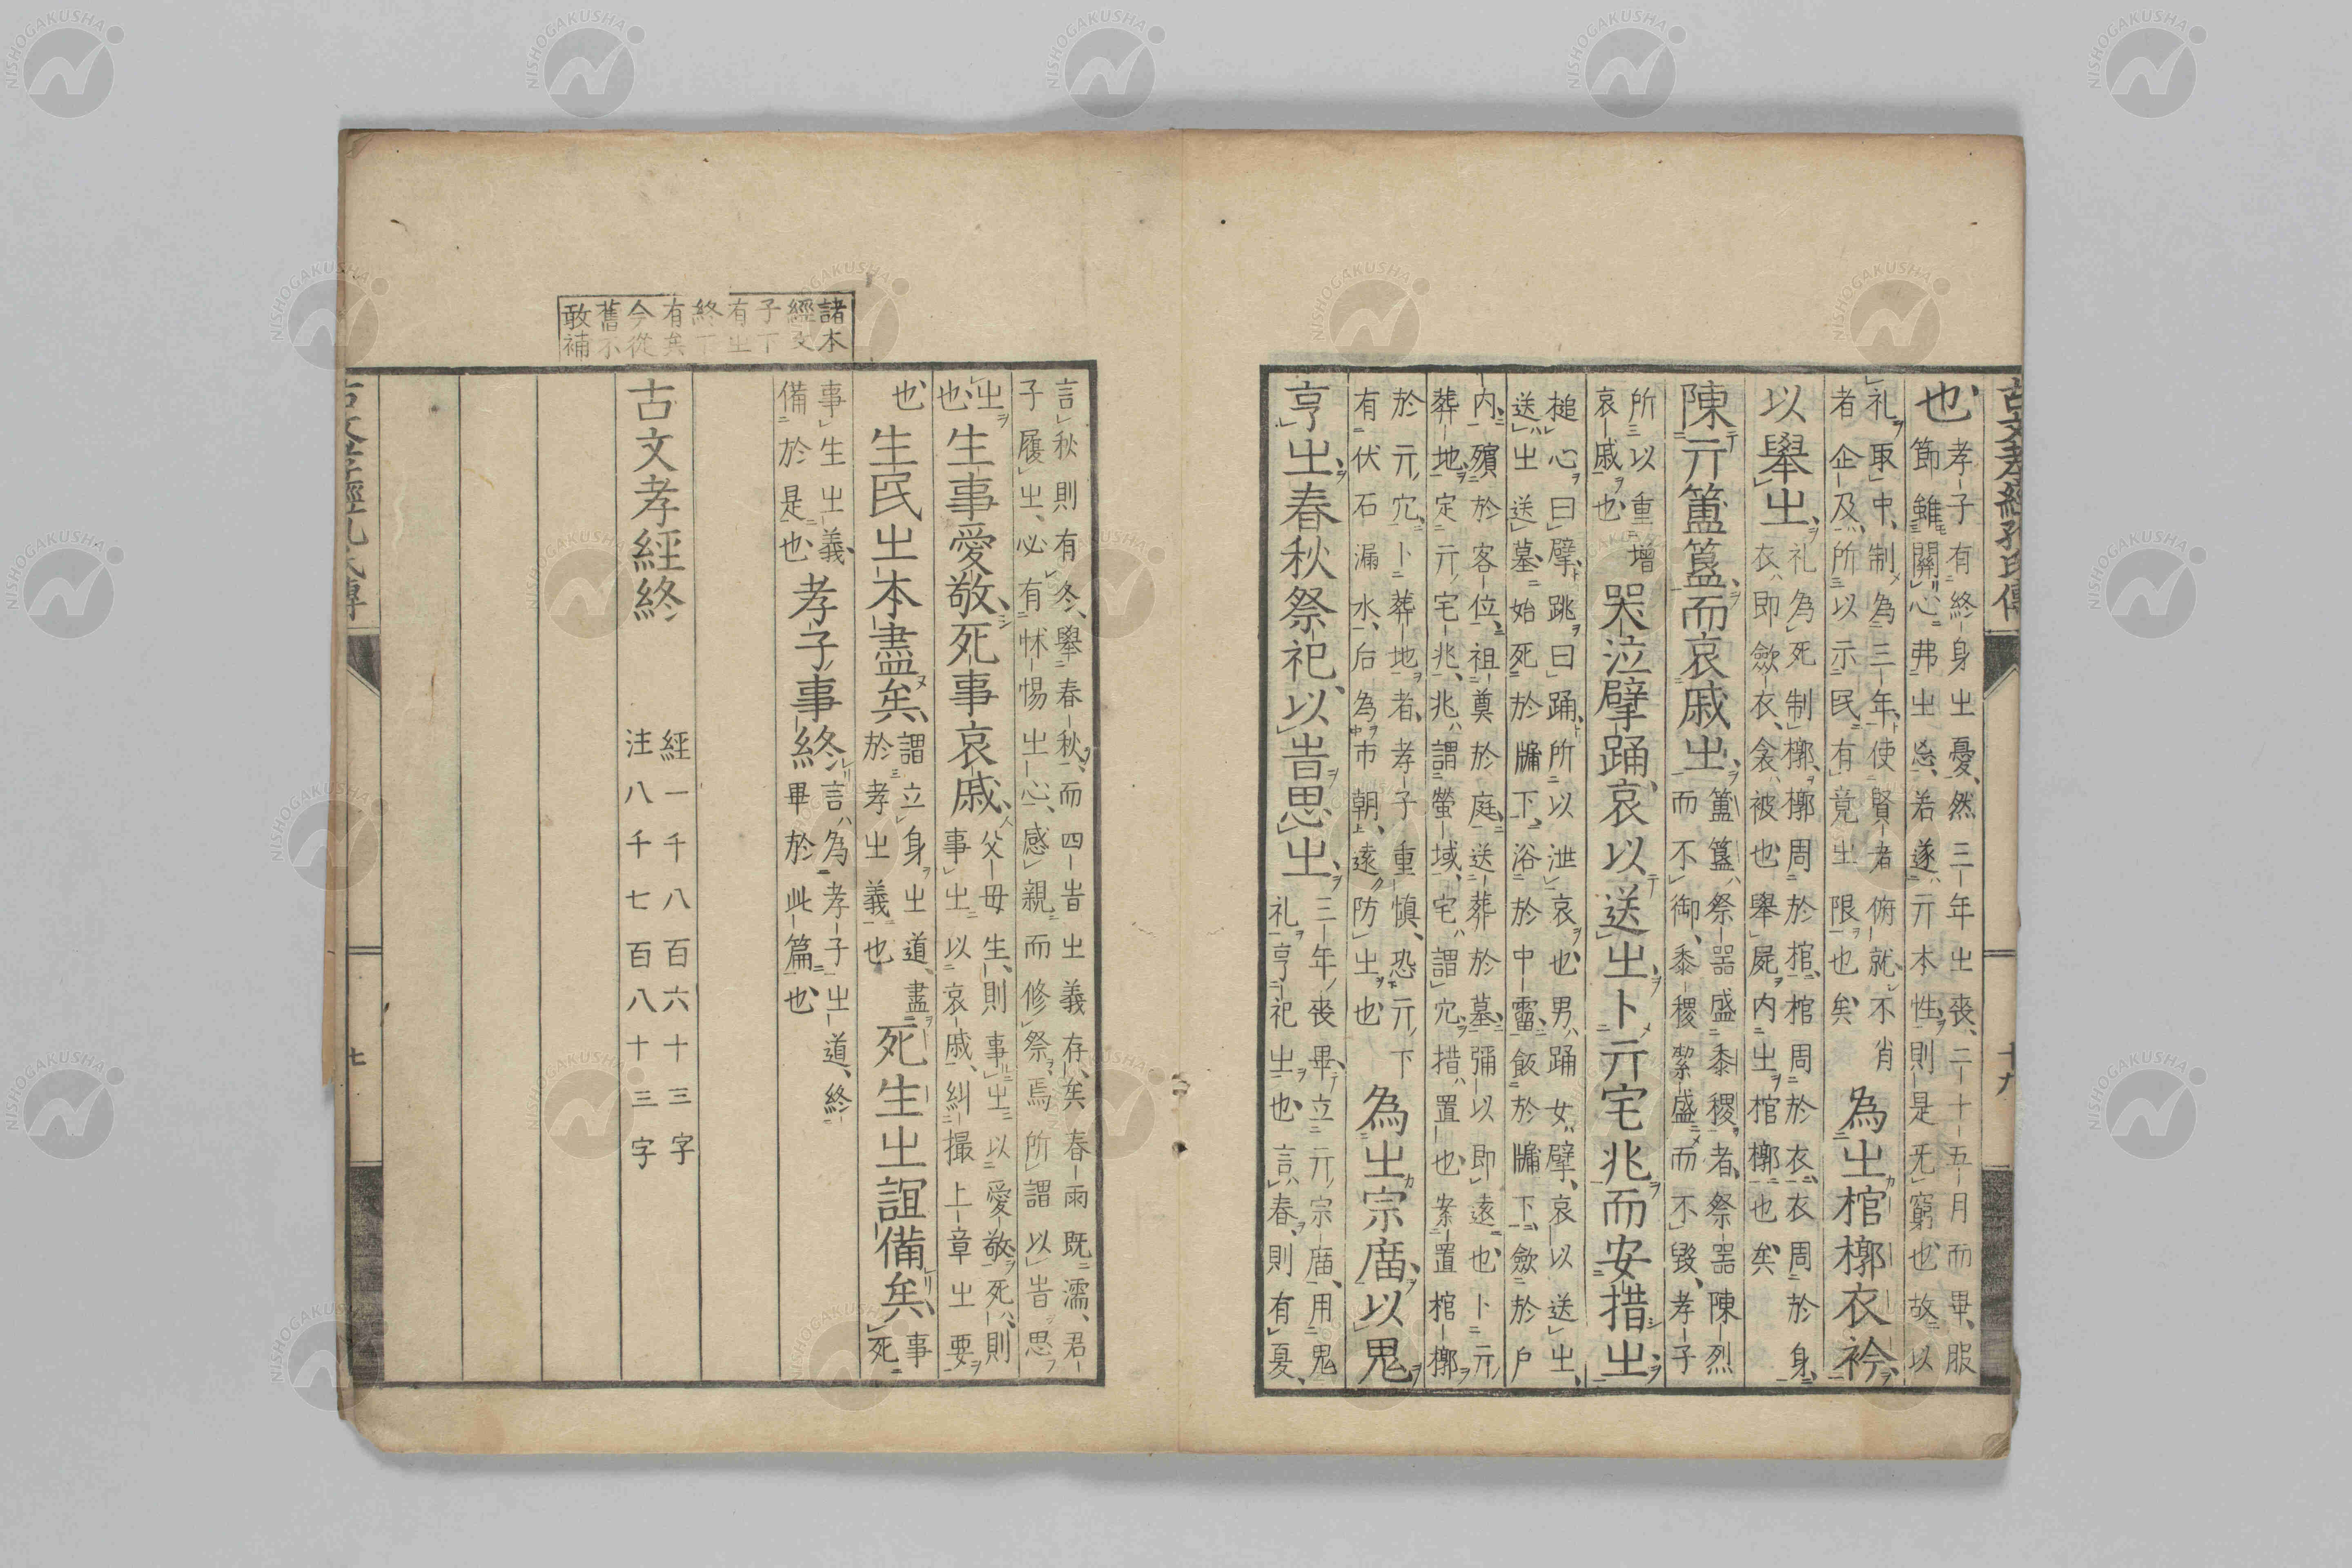 古文孝經孔氏傳 十九
也
孝子有終身㞢憂然三年㞢喪二十五月而畢服
節雖闋心弗㞢忘若遂亓本性則是无窮也故以
礼取中制為三年使賢者俯就不肖
者企及所以示民有竟㞢限也矣
為㞢棺槨衣衿
以舉㞢
礼為死制槨槨周於棺棺周於衣衣周於身
衣即斂衣衾被也舉屍内㞢棺槨也矣
陳亓簠簋而哀戚㞢
簠簋祭器盛黍稷者祭器陳烈
而不御黍稷絜盛而不毀孝子
所以重增
哀戚也
哭泣擗踊哀以送㞢卜亓宅兆而安措㞢
搥心曰擗跳曰踊所以泄哀也男踊女擗哀以送㞢
送㞢送墓始死於牖下浴於中霤飯於牖下斂於户
内殯於客位祖奠於庭送葬於墓彌以即遠也卜亓
葬地定亓宅兆兆謂塋域宅謂穴措置也案置棺槨
於亓穴卜葬地者孝子重慎恐亓下
有伏石漏水后為市朝遠防㞢也
為㞢宗庿以鬼
亨㞢春秋祭祀以旹思㞢
三年喪畢立亓宗庿用鬼
礼亨祀㞢也言春則有夏
諸本
經文
子下
有㞢
終下
有矣
今從
舊不
敢補
言秋則有冬舉春秋而四旹㞢義存矣春雨既濡君
子履㞢必有怵惕㞢心感親而修祭焉所謂以旹思
㞢
也
生事愛敬死事哀戚
父母生則事㞢以愛敬死則
事㞢以哀戚糾撮上章㞢要
也
生民㞢本盡矣
謂立身㞢道盡
於孝㞢義也
死生㞢誼備矣
事
死
事生㞢義
備於是也
孝子事終
言為孝子㞢道終
畢於此篇也
古文孝經終
經一千八百六十三字
注八千七百八十三字
NISHOGAKUSHA